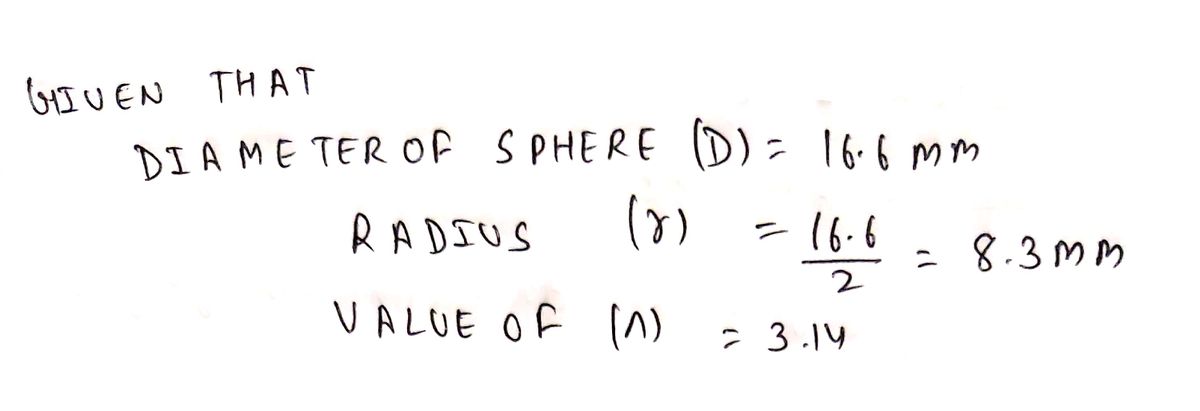 GIVEN THAT
DIAMETER OF SPHERE (D) = 16.6 mm
RADIUS (r) = 16.6/2 = 8.3 mm
VALUE OF (Λ) = 3.14